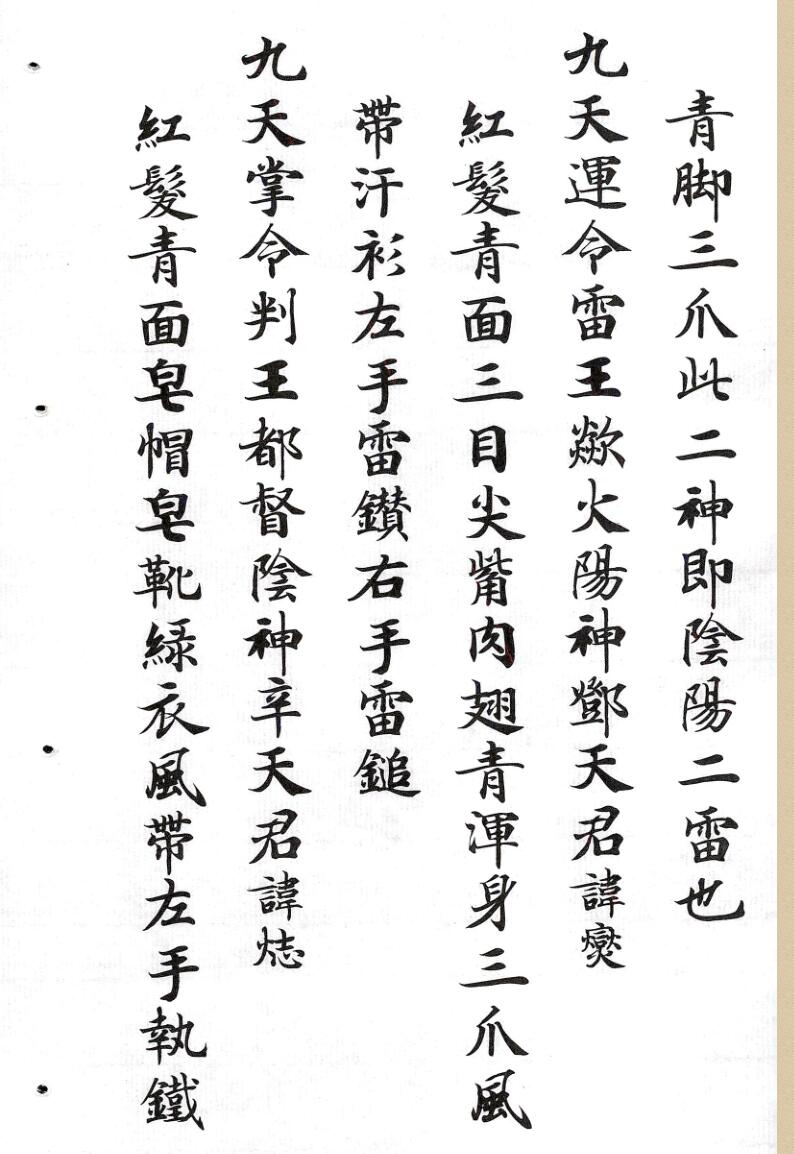 青脚三爪此二神即陰陽二雷也
九天運令雷王歘火陽神鄧天君諱爕
紅髮青面三目尖觜肉翅青渾身三爪風
帶汗衫左手雷鑚右手雷鎚
九天掌令判王都督陰神辛天君諱㤠
紅髮青面皂帽皂靴綠衣風帶左手執鐵